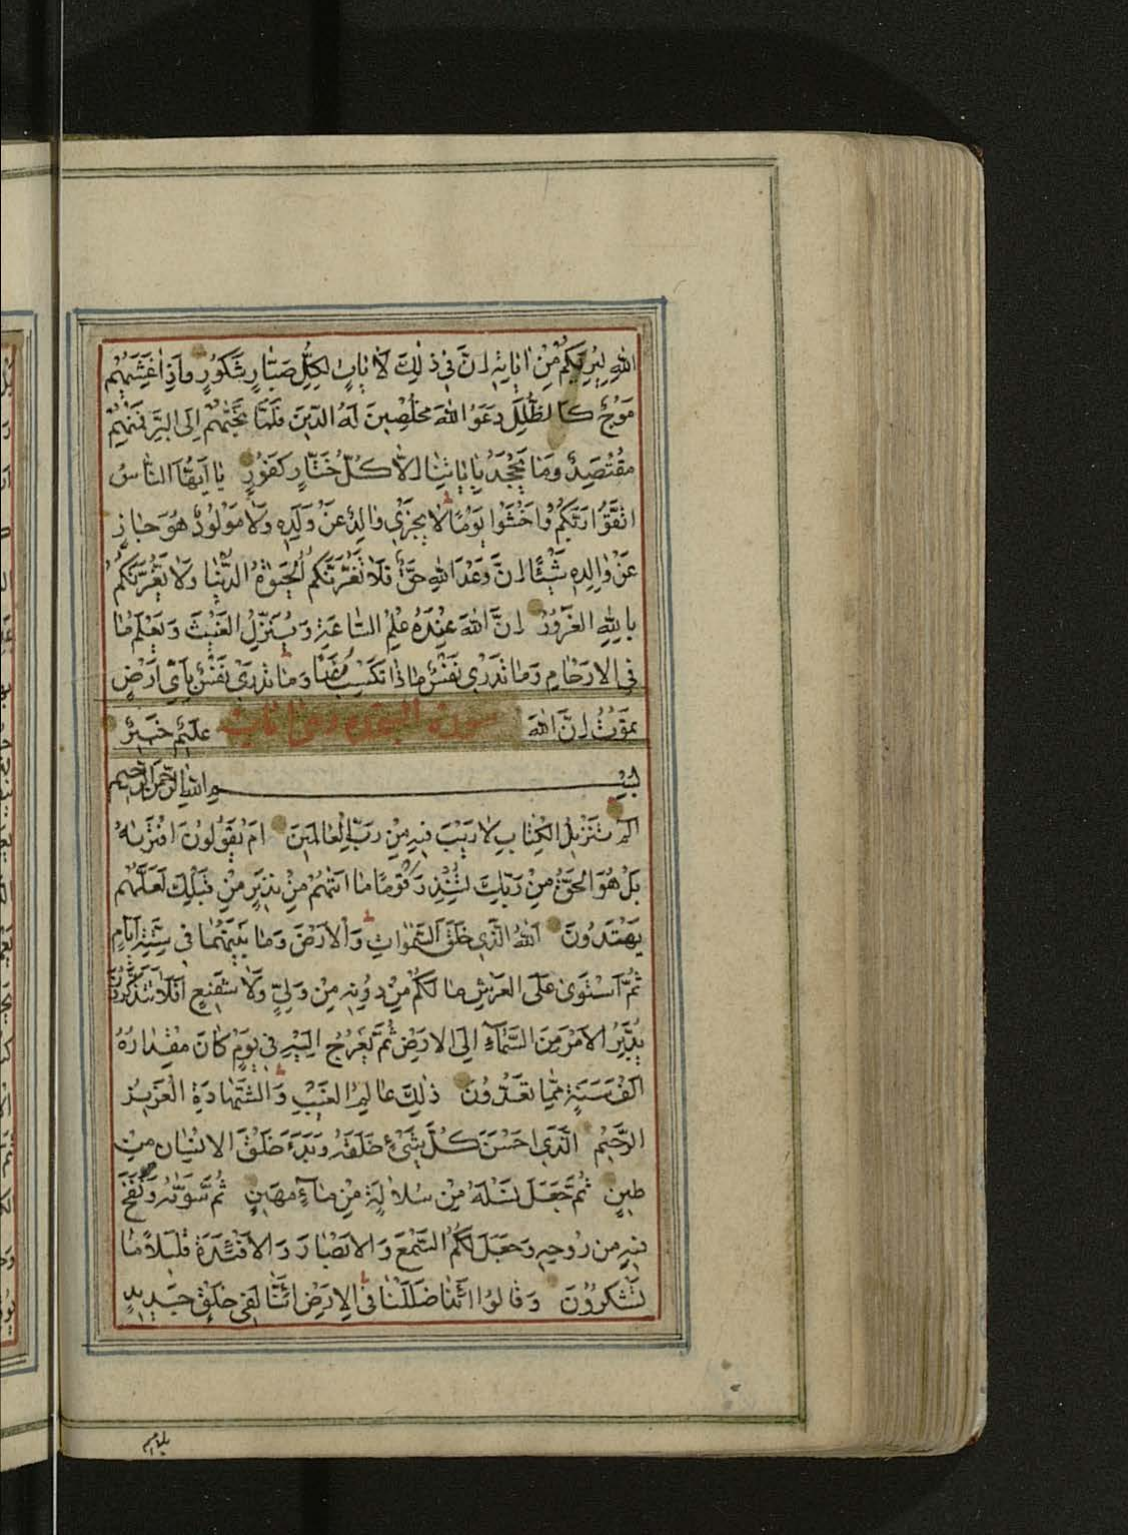 اللهِ لِيُرِيَكُمْ مِنْ اٰيَاتِهِ اِنَّ فِي ذٰلِكَ لَاٰيَاتٍ لِكُلِّ صَبَّارٍ شَكُورٍ وَاِذَا غَشِيَهُمْ
مَوْجٌ كَالظُّلَلِ دَعَوُا اللهَ مُخْلِصِينَ لَهُ الدِّينَ فَلَمَّا نَجّٰيهُمْ اِلَى الْبَرِّ فَمِنْهُمْ
مُقْتَصِدٌ وَمَا يَجْحَدُ بِاٰيَاتِنَا اِلَّا كُلُّ خَتَّارٍ كَفُورٍ يَا اَيُّهَا النَّاسُ
اتَّقُوا رَبَّكُمْ وَاخْشَوْا يَوْمًا لَا يَجْزِي وَالِدٌ عَنْ وَلَدِهِ وَلَا مَوْلُودٌ هُوَ جَازٍ
عَنْ وَالِدِهِ شَيْئًا اِنَّ وَعْدَ اللهِ حَقٌّ فَلَا تَغُرَّنَّكُمُ الْحَيٰوةُ الدُّنْيَا وَلَا يَغُرَّنَّكُمْ
بِاللهِ الْغَرُورُ اِنَّ اللهَ عِنْدَهُ عِلْمُ السَّاعَةِ وَيُنَزِّلُ الْغَيْثَ وَيَعْلَمُ مَا
فِي الْاَرْحَامِ وَمَا تَدْرِي نَفْسٌ مَاذَا تَكْسِبُ غَدًا وَمَا تَدْرِي نَفْسٌ بِاَيِّ اَرْضٍ
تَمُوتُ اِنَّ اللهَ سورة السجدة عَلِيمٌ خَبِيرٌ
بِسْمِ اللهِ الرَّحْمٰنِ الرَّحِيمِ
الٓمٓ تَنْزِيلُ الْكِتَابِ لَا رَيْبَ فِيهِ مِنْ رَبِّ الْعَالَمِينَ اَمْ يَقُولُونَ افْتَرٰيهُ
بَلْ هُوَ الْحَقُّ مِنْ رَبِّكَ لِتُنْذِرَ قَوْمًا مَا اَتٰيهُمْ مِنْ نَذِيرٍ مِنْ قَبْلِكَ لَعَلَّهُمْ
يَهْتَدُونَ اَللهُ الَّذِي خَلَقَ السَّمٰوَاتِ وَالْاَرْضَ وَمَا بَيْنَهُمَا فِي سِتَّةِ اَيَّامٍ
ثُمَّ اسْتَوٰى عَلَى الْعَرْشِ مَا لَكُمْ مِنْ دُونِهِ مِنْ وَلِيٍّ وَلَا شَفِيعٍ اَفَلَا تَتَذَكَّرُونَ
يُدَبِّرُ الْاَمْرَ مِنَ السَّمَآءِ اِلَى الْاَرْضِ ثُمَّ يَعْرُجُ اِلَيْهِ فِي يَوْمٍ كَانَ مِقْدَارُهُ
اَلْفَ سَنَةٍ مِمَّا تَعُدُّونَ ذٰلِكَ عَالِمُ الْغَيْبِ وَالشَّهَادَةِ الْعَزِيزُ
الرَّحِيمُ الَّذِي اَحْسَنَ كُلَّ شَيْءٍ خَلَقَهُ وَبَدَءَ خَلْقَ الْاِنْسَانِ مِنْ
طِينٍ ثُمَّ جَعَلَ نَسْلَهُ مِنْ سُلَالَةٍ مِنْ مَآءٍ مَهِينٍ ثُمَّ سَوّٰيهُ وَنَفَخَ
فِيهِ مِنْ رُوحِهِ وَجَعَلَ لَكُمُ السَّمْعَ وَالْاَبْصَارَ وَالْاَفْئِدَةَ قَلِيلًا مَا
تَشْكُرُونَ وَقَالُوا اَئِذَا ضَلَلْنَا فِي الْاَرْضِ اَئِنَّا لَفِي خَلْقٍ جَدِيدٍ